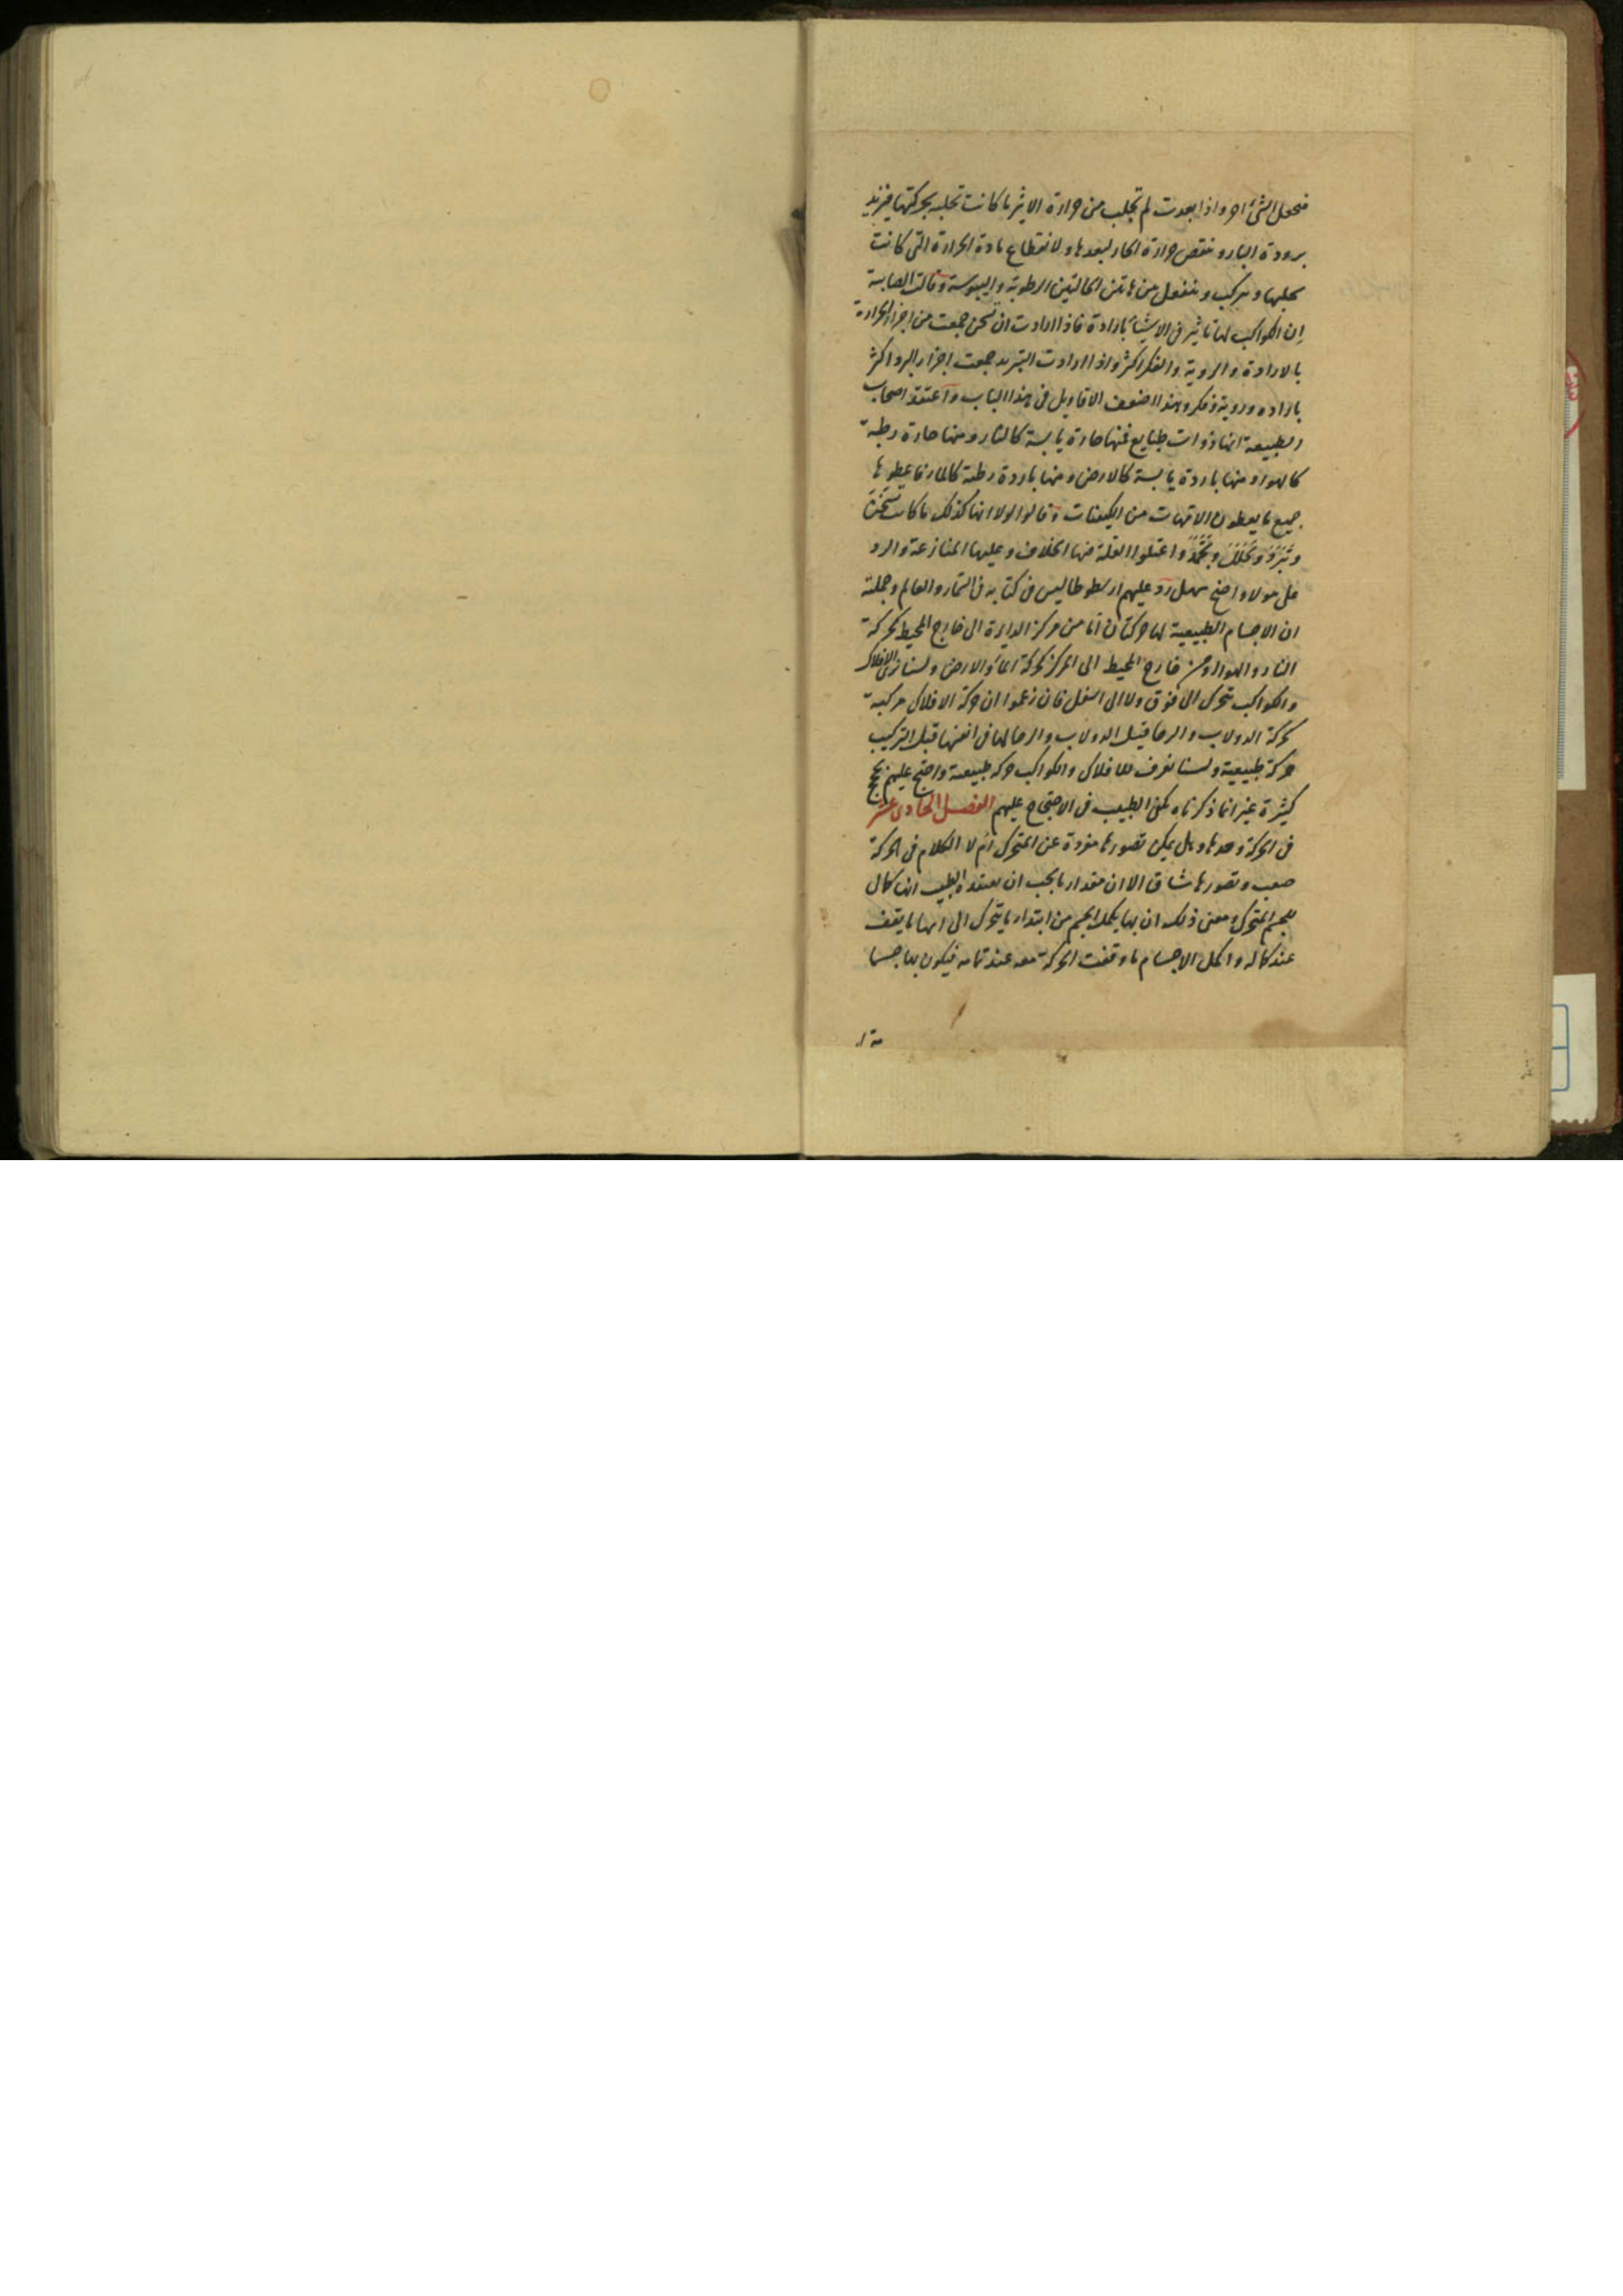 فتجعل الشئ احر واذا بعدت لم تجلب من حرارة الاثير ما كانت تجلبه بحركتها فيزيد
برودة البارد وينقص حرارة الحار لبعدها ولانقطاع مادة الحرارة التى كانت
تجلبها وتركب وينفعل من هاتين الحالتين الرطوبة واليبوسة وقالت الصابية
إن الكواكب لها تاثير فى الاشياء بارادة فاذا ارادت ان تسخن جمعت من اجزاء الحرارة
بالارادة والروية والفكر اكثر واذا ارادت التبريد جمعت اجزاء البرد اكثر
بارادة وروية وفكر وهذا اضعف الاقاويل فى هذا الباب واعتقد اصحاب
الطبيعة انها ذوات طبايع فمنها حارة يابسة كالنار ومنها حارة رطبة
كالهواء ومنها باردة يابسة كالارض ومنها باردة رطبة كالماء فاعطوها
جميع ما يعطون الامهات من الكيفيات وقالوا لولا انها كذلك ما كانت تسخن
وتبرد وتحلل وتجمد واعتلوا العلة فيها الخلاف وعليها المنازعة والرد
على هولاء واضح سهل رد عليهم ارسطوطاليس فى كتابه فى السماء والعالم وجملة
ان الاجسام الطبيعية لها حركتان اما من مركز الدايرة الى خارج المحيط كحركة
النار والهواء او من خارج المحيط الى المركز كحركة الماء والارض ولسنا نرى الافلاك
والكواكب تتحرك الى فوق ولا الى اسفل فان زعموا ان حركة الافلاك مركبة
كحركة الدولاب والرحا قيل الدولاب والرحا لها فى انفسها قبل التركيب
حركة طبيعية ولسنا نعرف للافلاك والكواكب حركة طبيعية واحتج عليهم بحجج
كثيرة غير ان ما ذكرناه يكفى الطبيب فى الاحتجاج عليهم الفصل الحادى عشر
فى الحركة وحدها وهل يمكن تصورها مفردة عن المتحرك ام لا الكلام فى الحركة
صعب وتصورها شاق الا ان مقدار ما يجب ان يعتقده الطبيب انها كمال
للجسم المتحرك ومعنى ذلك ان بها يكمل الجسم من ابتداء ما يتحرك الى انتها ما يقف
عند كماله واكمل الاجسام ما وقفت الحركة معه عند تمامه فيكون بها جسما